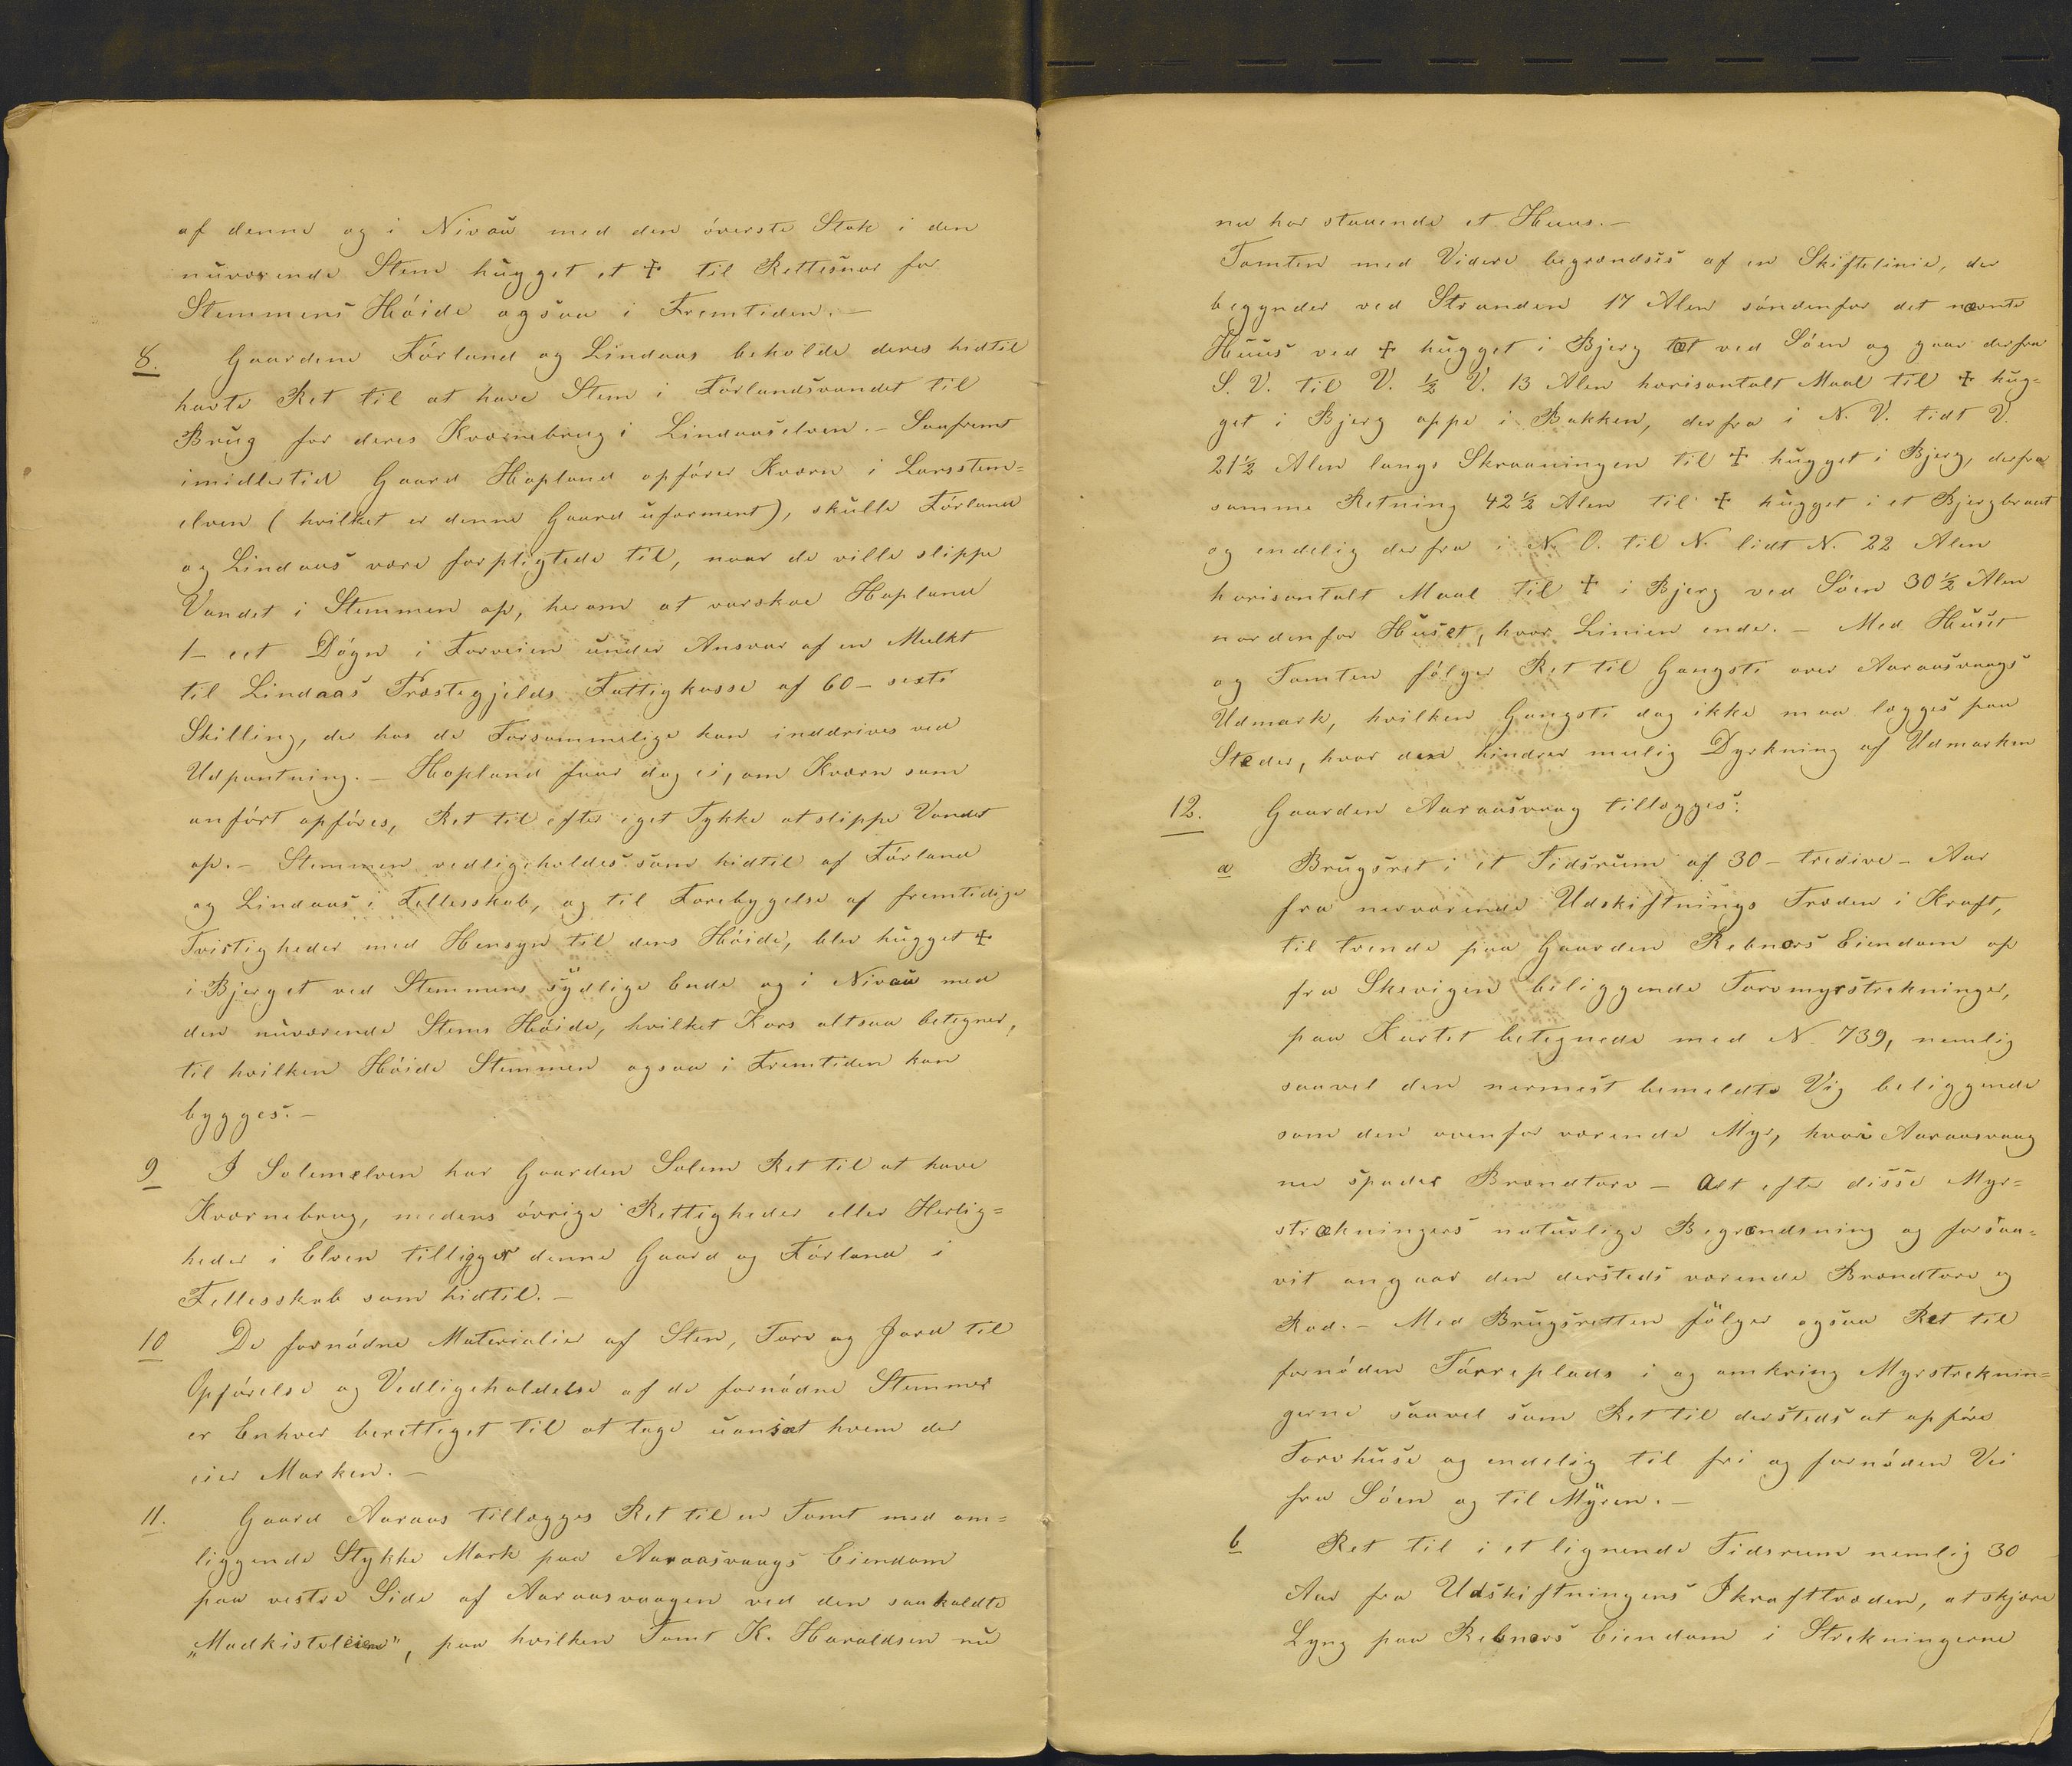 af denne og i Nivau med den överste Stok i den
nuværende Stem hugget et ✝ til Rettesnor for
Stemmens Höide ogsaa i Fremtiden. —
8. Gaardene Förland og Lindaas beholde deres hidtil
havte Ret til at have Stem i Förlandsvandet til
Brug for deres Kværnebrug i Lindaaselven. — Saafremt
imidlertid Gaard Hopland opförer Kværn i Larsstem=
elven (hvilket er denne Gaard uforment), skulle Förland
og Lindaas være forpligtede til, naar de ville slippe
Vandet i Stemmen op, herom at varskoe Hopland
1 — eet Dögn i Forveien under Ansvar af en Mulkt
til Lindaas Præstegjelds Fattigkasse af 60 — sexti
Skilling, der hos de Forsømmelige kan inddrives ved
Udpantning. — Hopland faar dog ei, om Kværn som
anfört opföres, Ret til efter eget Tykke at slippe Vandet
op. — Stemmen vedligeholdes som hidtil af Förland
og Lindaas i Fellesskab, og til Forebygelse af fremtidige
Tvistigheder med Hensyn til dens Höide, blev hugget ✝
i Bjerget ved Stemmens sydlige Ende og i Nivau med
den nuværende Stems Höide, hvilket Kors altsaa betegner,
til hvilken Höide Stemmen ogsaa i Fremtiden kan
bygges. —
9 I Solemelven har Gaarden Solem Ret til at have
Kværnebrug, medens övrige Rettigheder eller Herlig=
heder i Elven tilligger denne Gaard og Förland i
Fellesskab som hidtil. —
10 De fornödne Materialier af Sten, Torv og Jord til
Opförelse og Vedligeholdelse af de fornödne Stemmer
er Enhver berettiget til at tage uanset hvem der
eier Marken. —
11. Gaard Aaraas tillægges Ret til en Tomt med om=
liggende Stykke Mark paa Aaraasvaags Eiendom
paa vestre Side af Aaraasvaagen ved den saakaldte
„Madkisteleien", paa hvilken Tomt K. Haraldsen nu
nu har staaende et Huus. —
Tomten med Videre begrændses af en Skiftelinie, der
begynder ved Stranden 17 Alen söndenfor det nævnte
Huus ved ✝ hugget i Bjerg tæt ved Söen og gaar derfra
S. V. til V. ½ V. 13 Alen horisontalt Maal til ✝ hug=
get i Bjerg oppe i Bakken, derfra i N. V. lidt V.
21½ Alen langs Skraaningen til ✝ hugget i Bjerg, derfra
samme Retning 42½ Alen til ✝ hugget i et Bjergbraat
og endelig derfra i N. O. til N. lidt N. 22 Alen
horisontalt Maal til ✝ i Bjerg ved Söen 30½ Alen
nordenfor Huset, hvor Linien ender. — Med Huset
og Tomten fölger Ret til Gangsti over Aaraasvaags
Udmark, hvilken Gangsti dog ikke maa lægges paa
Steder, hvor den hindrer mulig Dyrkning af Udmarken
12. Gaarden Aaraasvaag tillægges:
a Brugsret i et Tidsrum af 30 — tredive — Aar
fra nerværende Udskiftnings Træden i Kraft,
til tvende paa Gaarden Rebnors Eiendom op
fra Skevigen beliggende Torvmyrstrekninger,
paa Kartet betegnede med N. 739, nemlig
saavel den nermest bemeldte Vig beliggende
som den ovenfor værende Myr, hvor Aaraasvaag
nu spader Brændtorv — Alt efter disse Myr=
strækningers naturlige Begrændsning og forsaa=
vit angaar den dersteds værende Brændtorv og
Rod. — Med Brugsretten fölger ogsaa Ret til
fornöden Törreplads i og omkring Myrstreknin=
gerne saavel som Ret til dersteds at opföre
Torvhuse og endelig til fri og fornöden Vei
fra Söen og til Myren. —
b Ret til i et lignende Tidsrum nemlig 30
Aar fra Udskiftningens Ikrafttræden, at skjære
Lyng paa Rebnors Eiendom i Strekningerne